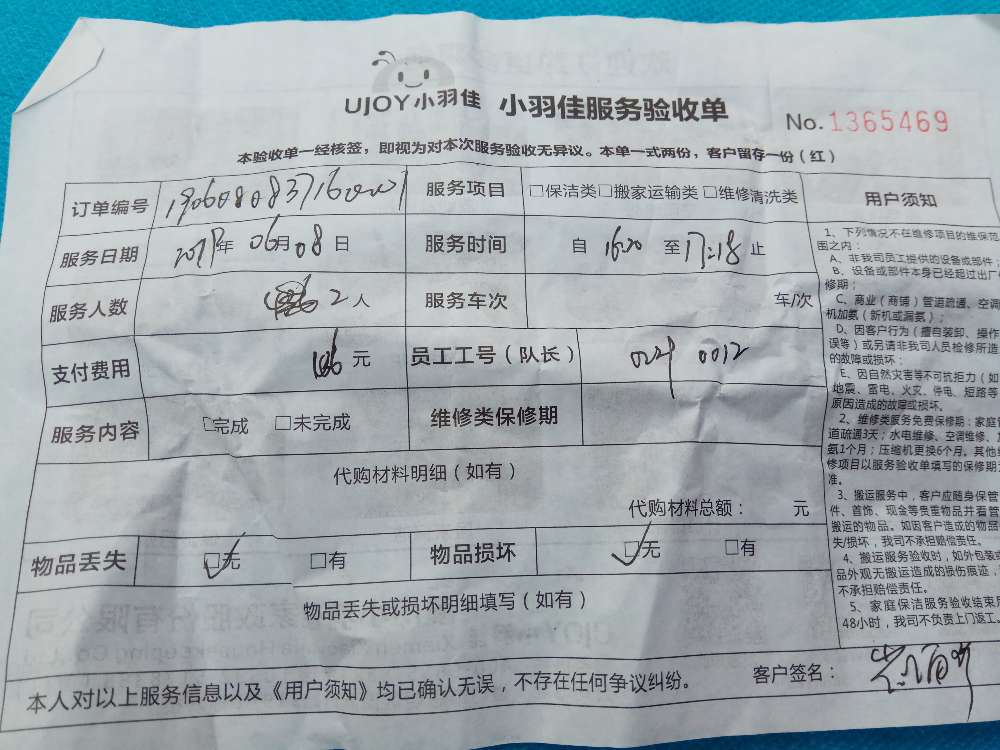 UJOY小羽佳 小羽佳服务验收单
No.1365469
本验收单一经核签，即视为对本次服务验收无异议。本单一式两份，客户留存一份（红）
订单编号 服务项目 □保洁类□搬家运输类□维修清洗类
服务日期 2019年 06月 08 日 服务时间 自 16:20 至 17:18 止
服务人数 2 人 服务车次 车/次
支付费用 106 元 员工工号（队长） 0029 0012
服务内容 □完成 □未完成 维修类保修期
代购材料明细（如有）
代购材料总额： 元
物品丢失 □无 □有 物品损坏 □无 □有
物品丢失或损坏明细填写（如有）
本人对以上服务信息以及《用户须知》均已确认无误，不存在任何争议纠纷。 客户签名：
用户须知
1、下列情况不在维修项目的维保范
围之内：
A、非我司员工提供的设备或部件；
B、设备或部件本身已经超过出厂
修期；
C、商业（商铺）管道疏通、空调
机加氨（新机或漏氨）；
D、因客户行为（擅自装卸、操作
误等）或另请非我司人员检修所造
的故障或损坏；
E、因自然灾害等不可抗拒力（如
地震、雷电、火灾、停电、短路等
原因造成的故障或损坏。
2、维修类服务免费保修期：家庭管
道疏通3天；水电维修、空调维修、
氨1个月；压缩机更换6个月。其他
修项目以服务验收单填写的保修期
准。
3、搬运服务中，客户应随身保管
件、首饰、现金等贵重物品并看管
搬运的物品。如因客户造成的物品
失/损坏，我司不承担赔偿责任。
4、搬运服务验收时，如外包装或
品外观无搬运造成的损伤痕迹，
不承担赔偿责任。
5、家庭保洁服务验收结束后
48小时，我司不负责上门返工。